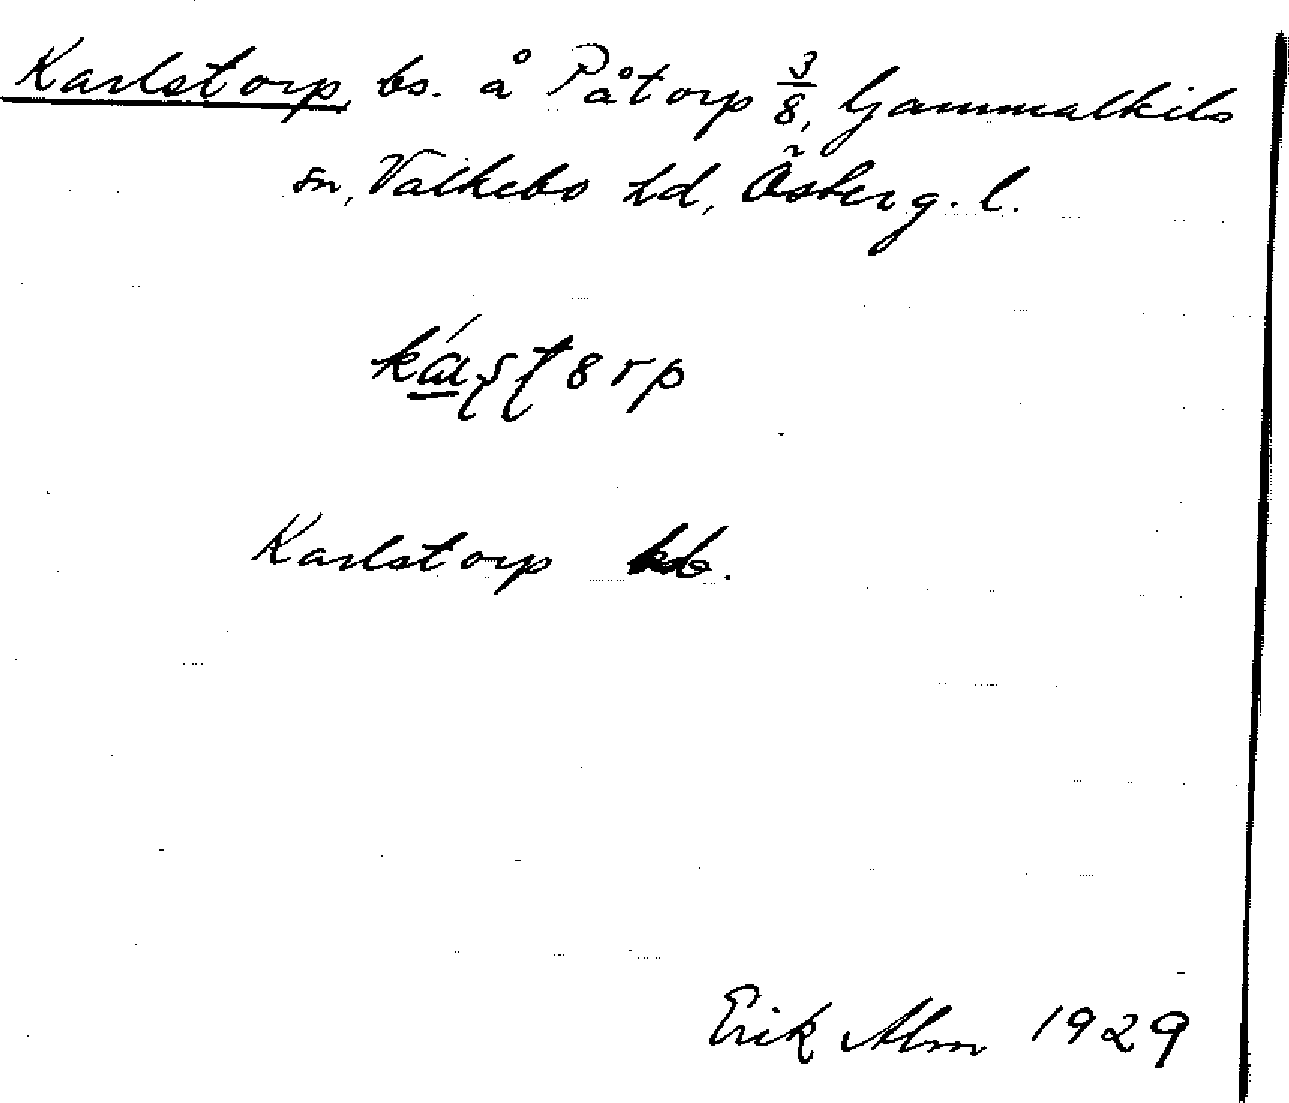 Karlstorp, bs. å Påtorp 3/8, Gammalkils
sn, Valkebo hd, Österg. l.
Karlstorp kb.
Erik Alm 1929